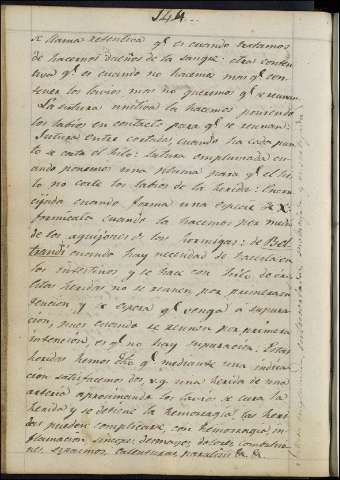 144..
se llama retentiva q.e es cuando tratamos
de hacernos dueños de la sangre: otra conten-
tiva q.e es cuando no hacemos mas q.e con-
tener los lavios mas no queremos q.e se reunan
La sutura unitiva la hacemos poniendo
los labios en contacto para q.e se reunan:
Sutura entre cortada, cuando ha cada pun-
to se corta el hilo: sutura emplumada cu-
ando ponemos una pluma para q.e el hi-
lo no corte los labios de la herida: Encru-
cijada cuando forma una especie de X:
formicata cuando la hacemos por medio
de los aguijones de los hormigas: de Bel-
trandi cuando hay necesidad de hacerla en
los intestinos y se hace con hilo de
Estas heridas no se reunen por primera in-
tencion, y se espera q.e venga á supura-
cion, pues cuando se reunen por primera
intención, es q.e no hay supuracion: Estas
heridas hemos dho q.e mediante una indica-
cion satisfacemos dos, v.g. una herida de una
arteria aproximando los lavios se cura la
herida y se detiene la hemorragia: las heri-
das pueden complicarse, con hemorragia, in-
flamacion sincope, desmayos, dolores, convulsio-
nes, espasmos, calenturas, paralisis &. &.